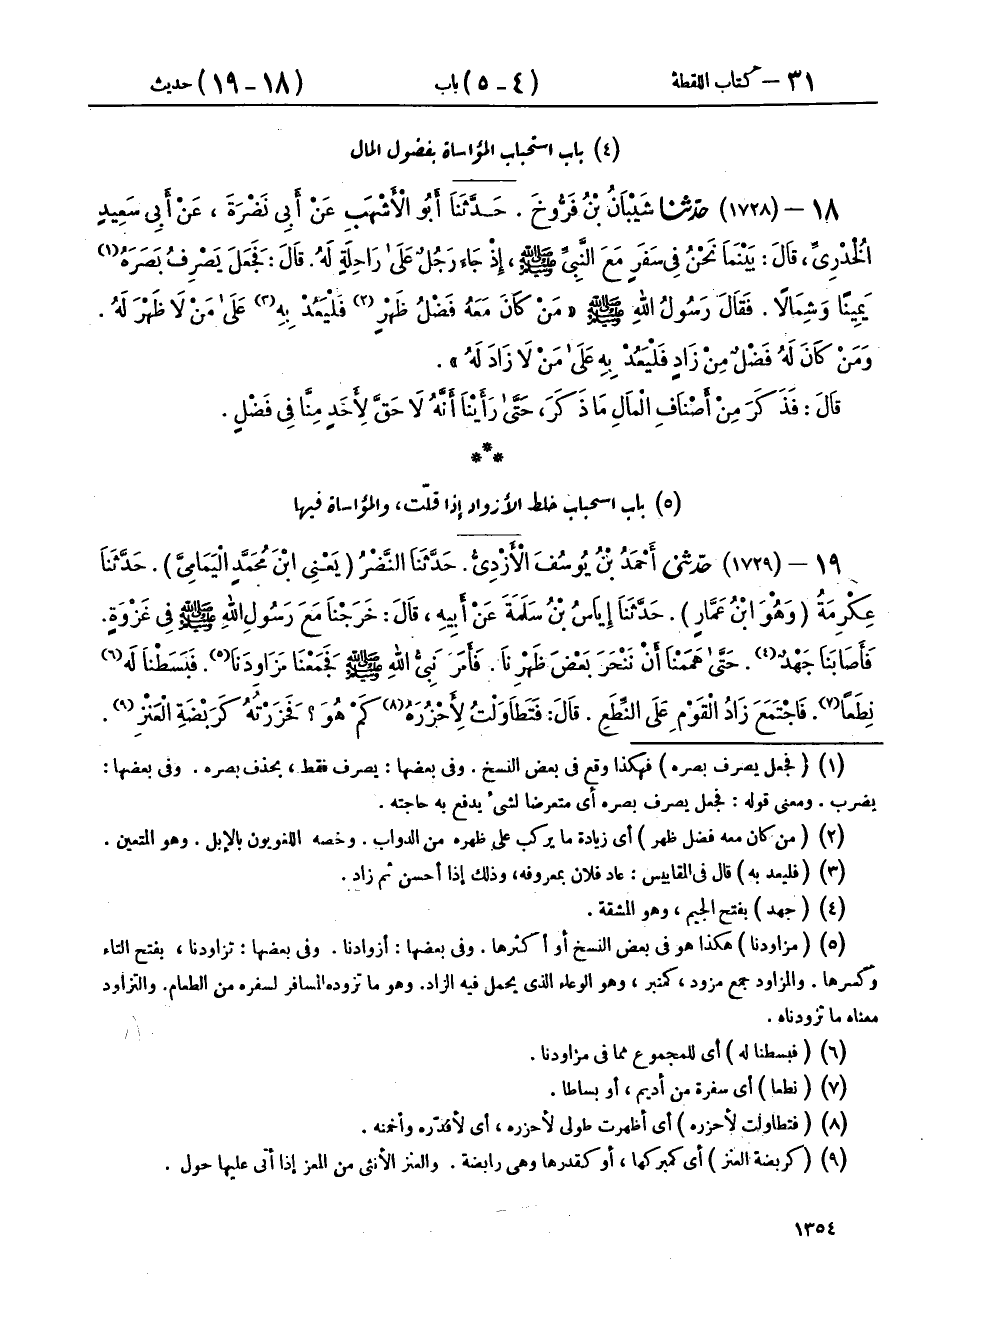 ٣١ – كتاب اللقطة (٤ – ٥) باب (١٨ – ١٩) حديث
(٤) باب استحباب المؤاساة بفضول المال
١٨ – (١٧٢٨) حدثنا شَيْبَانُ بْنُ فَرُّوخَ . حَدَّثَنَا أَبُو الْأَشْهَبِ عَنْ أَبِي نَضْرَةَ ، عَنْ أَبِي سَعِيدٍ
الْخُدْرِيِّ ، قَالَ : بَيْنَمَا نَحْنُ فِي سَفَرٍ مَعَ النَّبِيِّ ﷺ ، إِذْ جَاءَ رَجُلٌ عَلَىٰ رَاحِلَةٍ لَهُ . قَالَ : فَجَعَلَ يَصْرِفُ بَصَرَهُ (١)
يَمِينًا وَشِمَالًا . فَقَالَ رَسُولُ اللهِ ﷺ « مَنْ كَانَ مَعَهُ فَضْلُ ظَهْرٍ (٢) فَلْيَعُدْ بِهِ (٣) عَلَىٰ مَنْ لَا ظَهْرَ لَهُ .
وَمَنْ كَانَ لَهُ فَضْلٌ مِنْ زَادٍ فَلْيَعُدْ بِهِ عَلَىٰ مَنْ لَا زَادَ لَهُ » .
قَالَ : فَذَكَرَ مِنْ أَصْنَافِ الْمَالِ مَا ذَكَرَ ، حَتَّىٰ رَأَيْنَا أَنَّهُ لَا حَقَّ لِأَحَدٍ مِنَّا فِي فَضْلٍ .
***
(٥) باب استحباب خلط الأزواد إذا قلّت ، والمؤاساة فيها
١٩ – (١٧٢٩) حدثني أَحْمَدُ بْنُ يُوسُفَ الْأَزْدِيُّ . حَدَّثَنَا النَّضْرُ ( يَعْنِي ابْنَ مُحَمَّدٍ الْيَمَامِيَّ ) . حَدَّثَنَا
عِكْرِمَةُ ( وَهُوَ ابْنُ عَمَّارٍ ) . حَدَّثَنَا إِيَاسُ بْنُ سَلَمَةَ عَنْ أَبِيهِ ، قَالَ : خَرَجْنَا مَعَ رَسُولِ اللهِ ﷺ فِي غَزْوَةٍ .
فَأَصَابَنَا جَهْدٌ (٤) . حَتَّىٰ هَمَمْنَا أَنْ نَنْحَرَ بَعْضَ ظَهْرِنَا . فَأَمَرَ نَبِيُّ اللهِ ﷺ فَجَمَعْنَا مَزَاوِدَنَا (٥) . فَبَسَطْنَا لَهُ (٦)
نِطَعًا (٧) . فَاجْتَمَعَ زَادُ الْقَوْمِ عَلَى النِّطَعِ . قَالَ : فَتَطَاوَلْتُ لِأَحْزُرَهُ (٨) كَمْ هُوَ ؟ فَحَزَرْتُهُ كَرَبْضَةِ الْعَنْزِ (٩) .
(١) ( فجعل يصرف بصره ) فهكذا وقع في بعض النسخ . وفي بعضها : يصرف فقط ، بحذف بصره . وفي بعضها :
يضرب . ومعنى قوله : فجعل يصرف بصره أى متعرضا لشيء يدفع به حاجته .
(٢) ( من كان معه فضل ظهر ) أى زيادة ما يركب على ظهره من الدواب . وخصه اللغويون بالإبل . وهو المتعين .
(٣) ( فليعد به ) قال في المقاييس : عاد فلان بمعروفه ، وذلك إذا أحسن ثم زاد .
(٤) ( جهد ) بفتح الجيم ، وهو المشقة .
(٥) ( مزاودنا ) هكذا هو في بعض النسخ أو أكثرها . وفي بعضها : أزوادنا . وفي بعضها : تزاودنا ، بفتح التاء
وكسرها . والمزاود جمع مزود ، كمنبر ، وهو الوعاء الذى يحمل فيه الزاد . وهو ما تزوده المسافر لسفره من الطعام . والتزاود
معناه ما تزودناه .
(٦) ( فبسطنا له ) أى للمجموع مما في مزاودنا .
(٧) ( نطعا ) أى سفرة من أديم ، أو بساطا .
(٨) ( فتطاولت لأحزره ) أى أظهرت طولى لأحزره ، أى لأقدّره وأخمنه .
(٩) ( كربضة العنز ) أى كمبركها ، أو كقدرها وهى رابضة . والعنز الأنثى من المعز إذا أتى عليها حول .
١٣٥٤